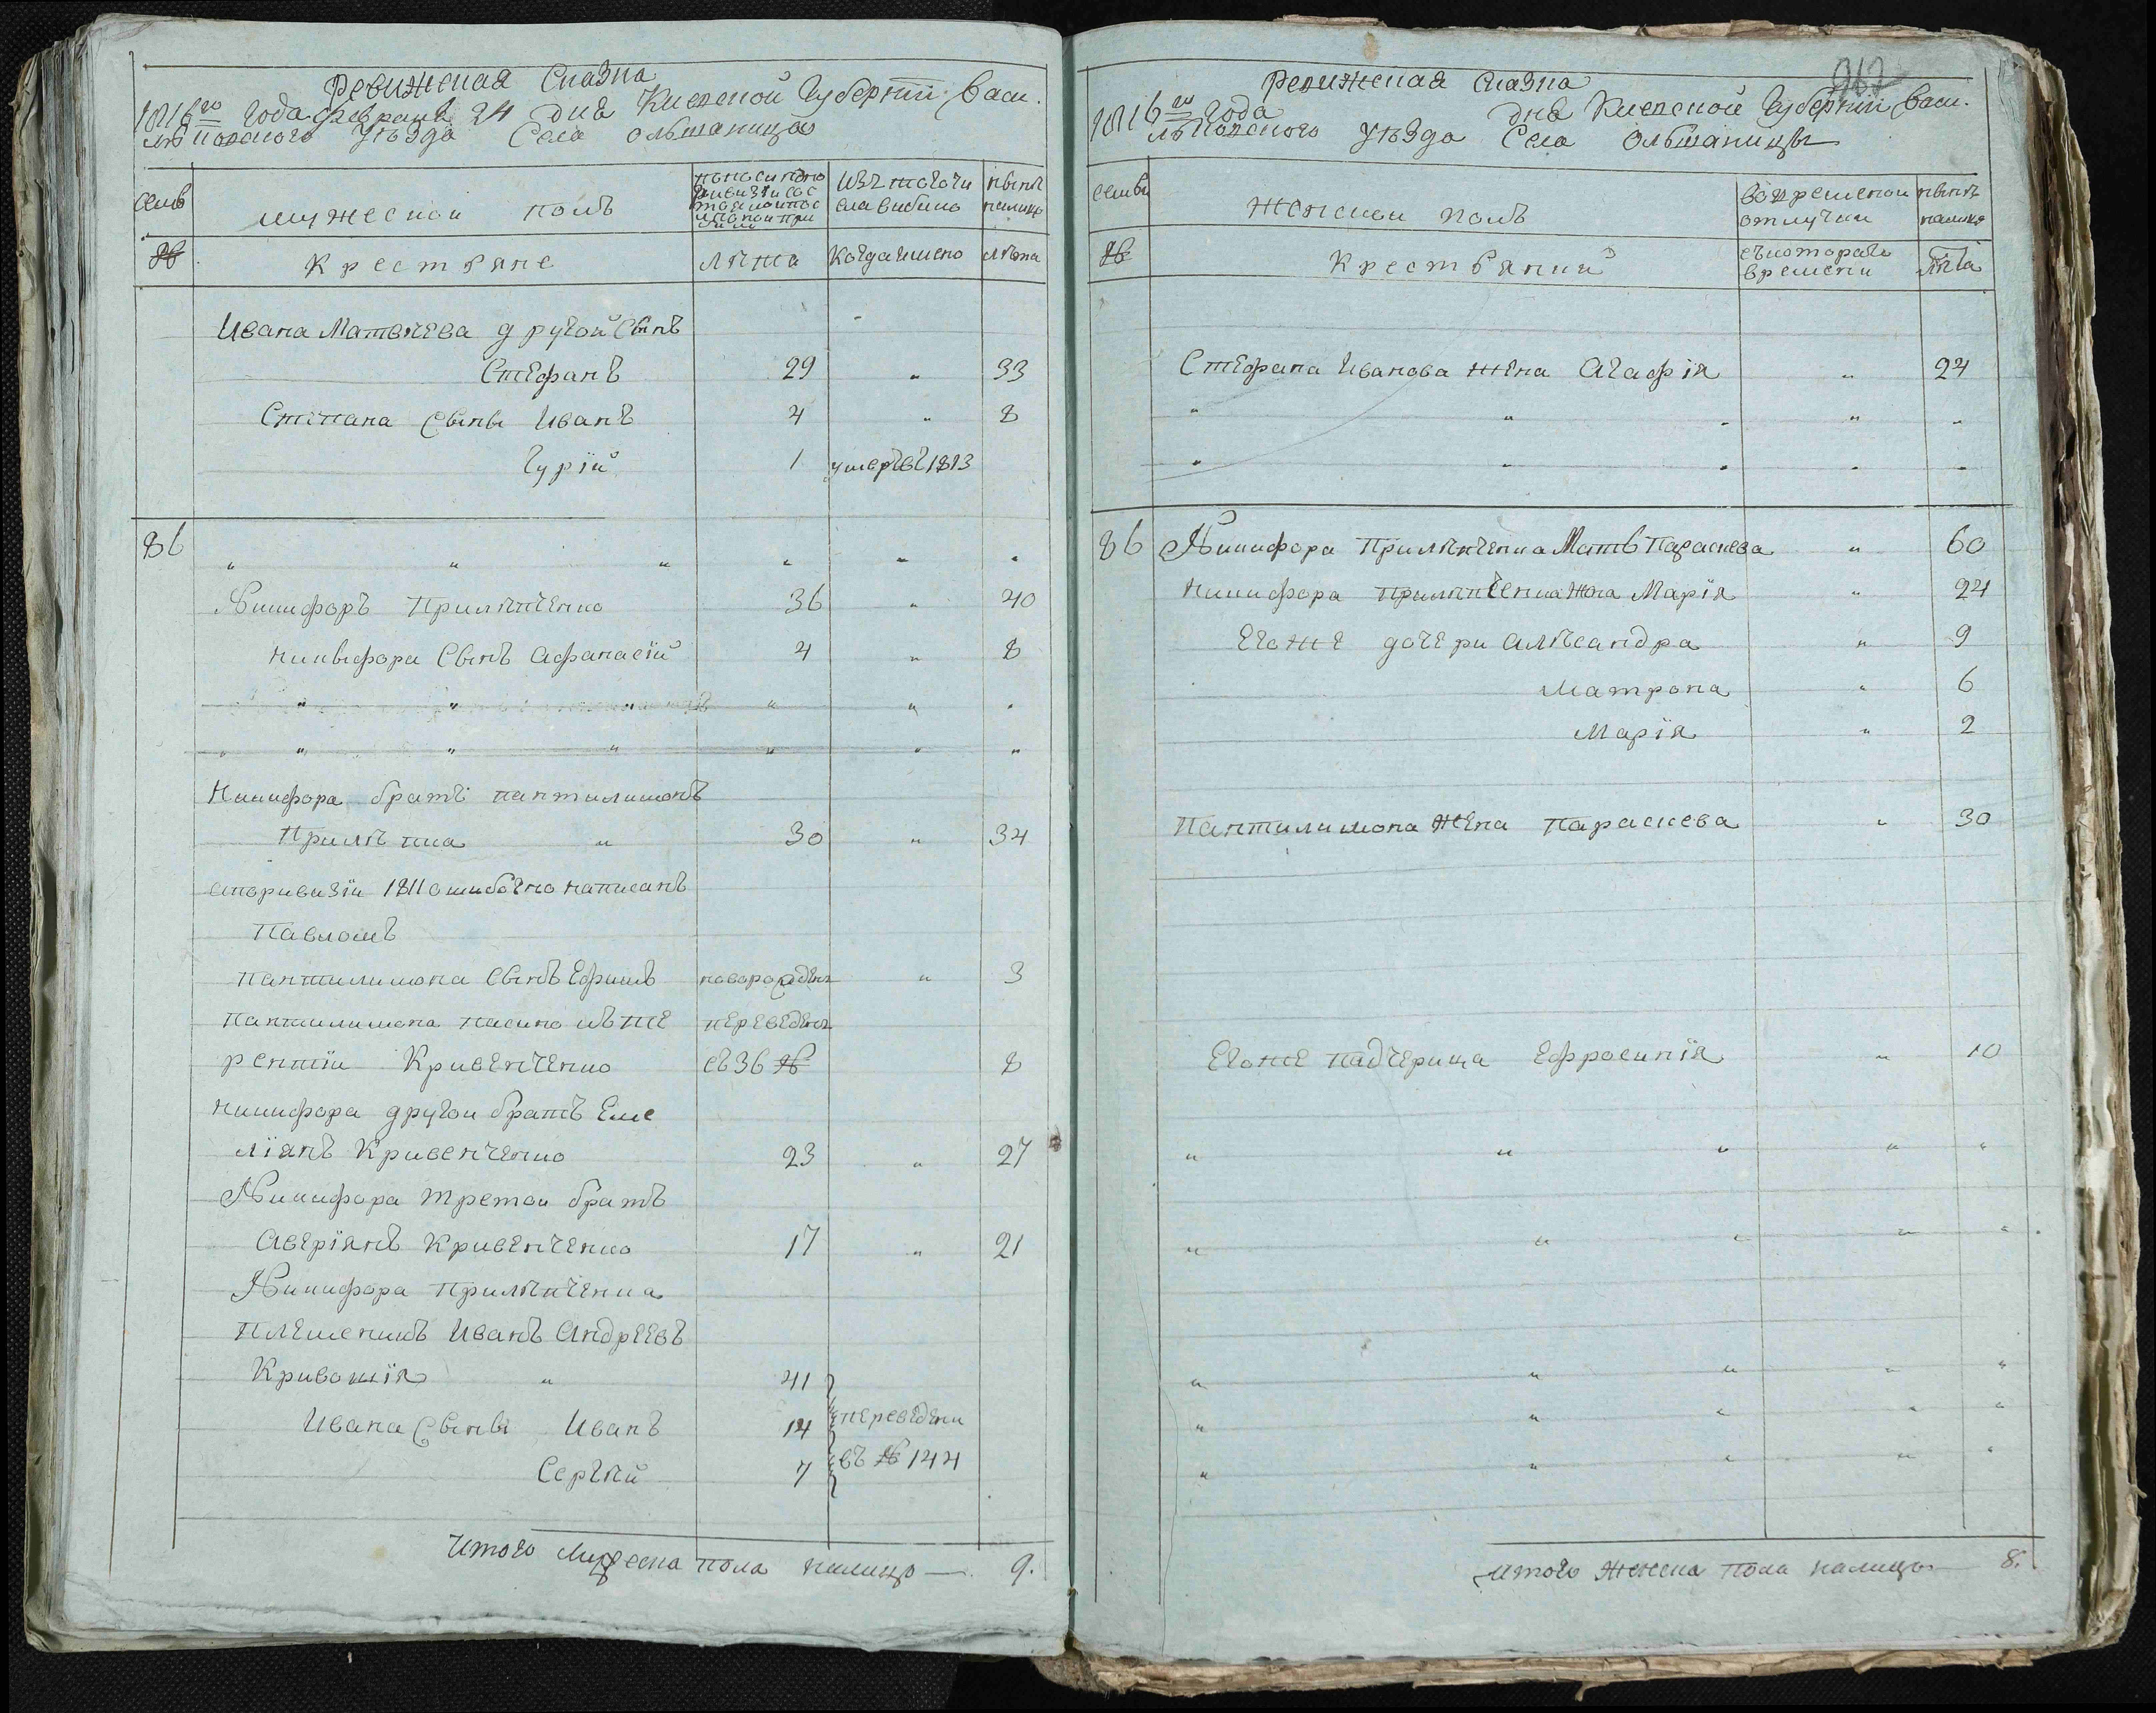 Ревижская Сказка
1816го Года Февраля 24 дня Киевской Губернїи Васи.
льковского Уезда Села Ольшаницы
семьи
мужеской полъ
выбыло
нынѣ налицо
№
Крестьяне
Лѣта
Когда имено
Лѣта
Ивана Матвѣева другой Сынъ
Стефанъ 29 „ 33
Степана Сыны Иванъ 4 „ 8
Гурїй 1 умеръ въ 1813
86 „ „ „ „ „ „
Никифоръ Прилѣпченко 36 „ 40
Никифора Сынъ Афанасїй 4 „ 8
„ „ „ „ „ „
„ „ „ „ „ „ „
Никифора братъ Пантилимонъ
Прилѣпка „ 30 „ 34
1811 ошибочно написанъ
Павломъ
Пантилимона Сынъ Ефимъ новорожденъ „ 3
Пантилимона пасинокъ Те переведенъ
рентїи Кривенченко съ 36 № 8
Никифора другои братъ Еме
лїянъ Кривенченко 23 „ 27
Никифора третои братъ
Аверїянъ Кривенченко 17 „ 21
Никифора Прилѣпченка
племеникъ Иванъ Андреевъ
Кривошїя „ 41
Ивана Сыны Иванъ 14 переведени
Сергѣй 7 въ № 144
Итого Мужеска пола налицо — 9.
967
Ревижская Сказка
1816го Года дня Киевской Губернїи Васи.
льковского Уезда Села Ольшаницы
семьи
Женскои полъ
во временой отлучки
нынѣ налицо
№
Крестьянки
съ котораго времени
Лѣта
Стефана Иванова жена Агафїя „ 24
„ „ „ „ „
„ „ „ „ „
86 Никифора Прилѣпченка Мать Параскева „ 60
Никифора Прилѣпченка жона Марїя „ 24
Егоже дочери Алѣксандра „ 9
Матрона „ 6
Марїя „ 2
Пантилимона жена Параскева „ 30
Егоже падчерица Ефросинїя „ 10
„ „ „ „ „
„ „ „ „ „
„ „ „ „ „
„ „ „ „ „
„ „ „ „ „
Итого женска пола налицо 8.